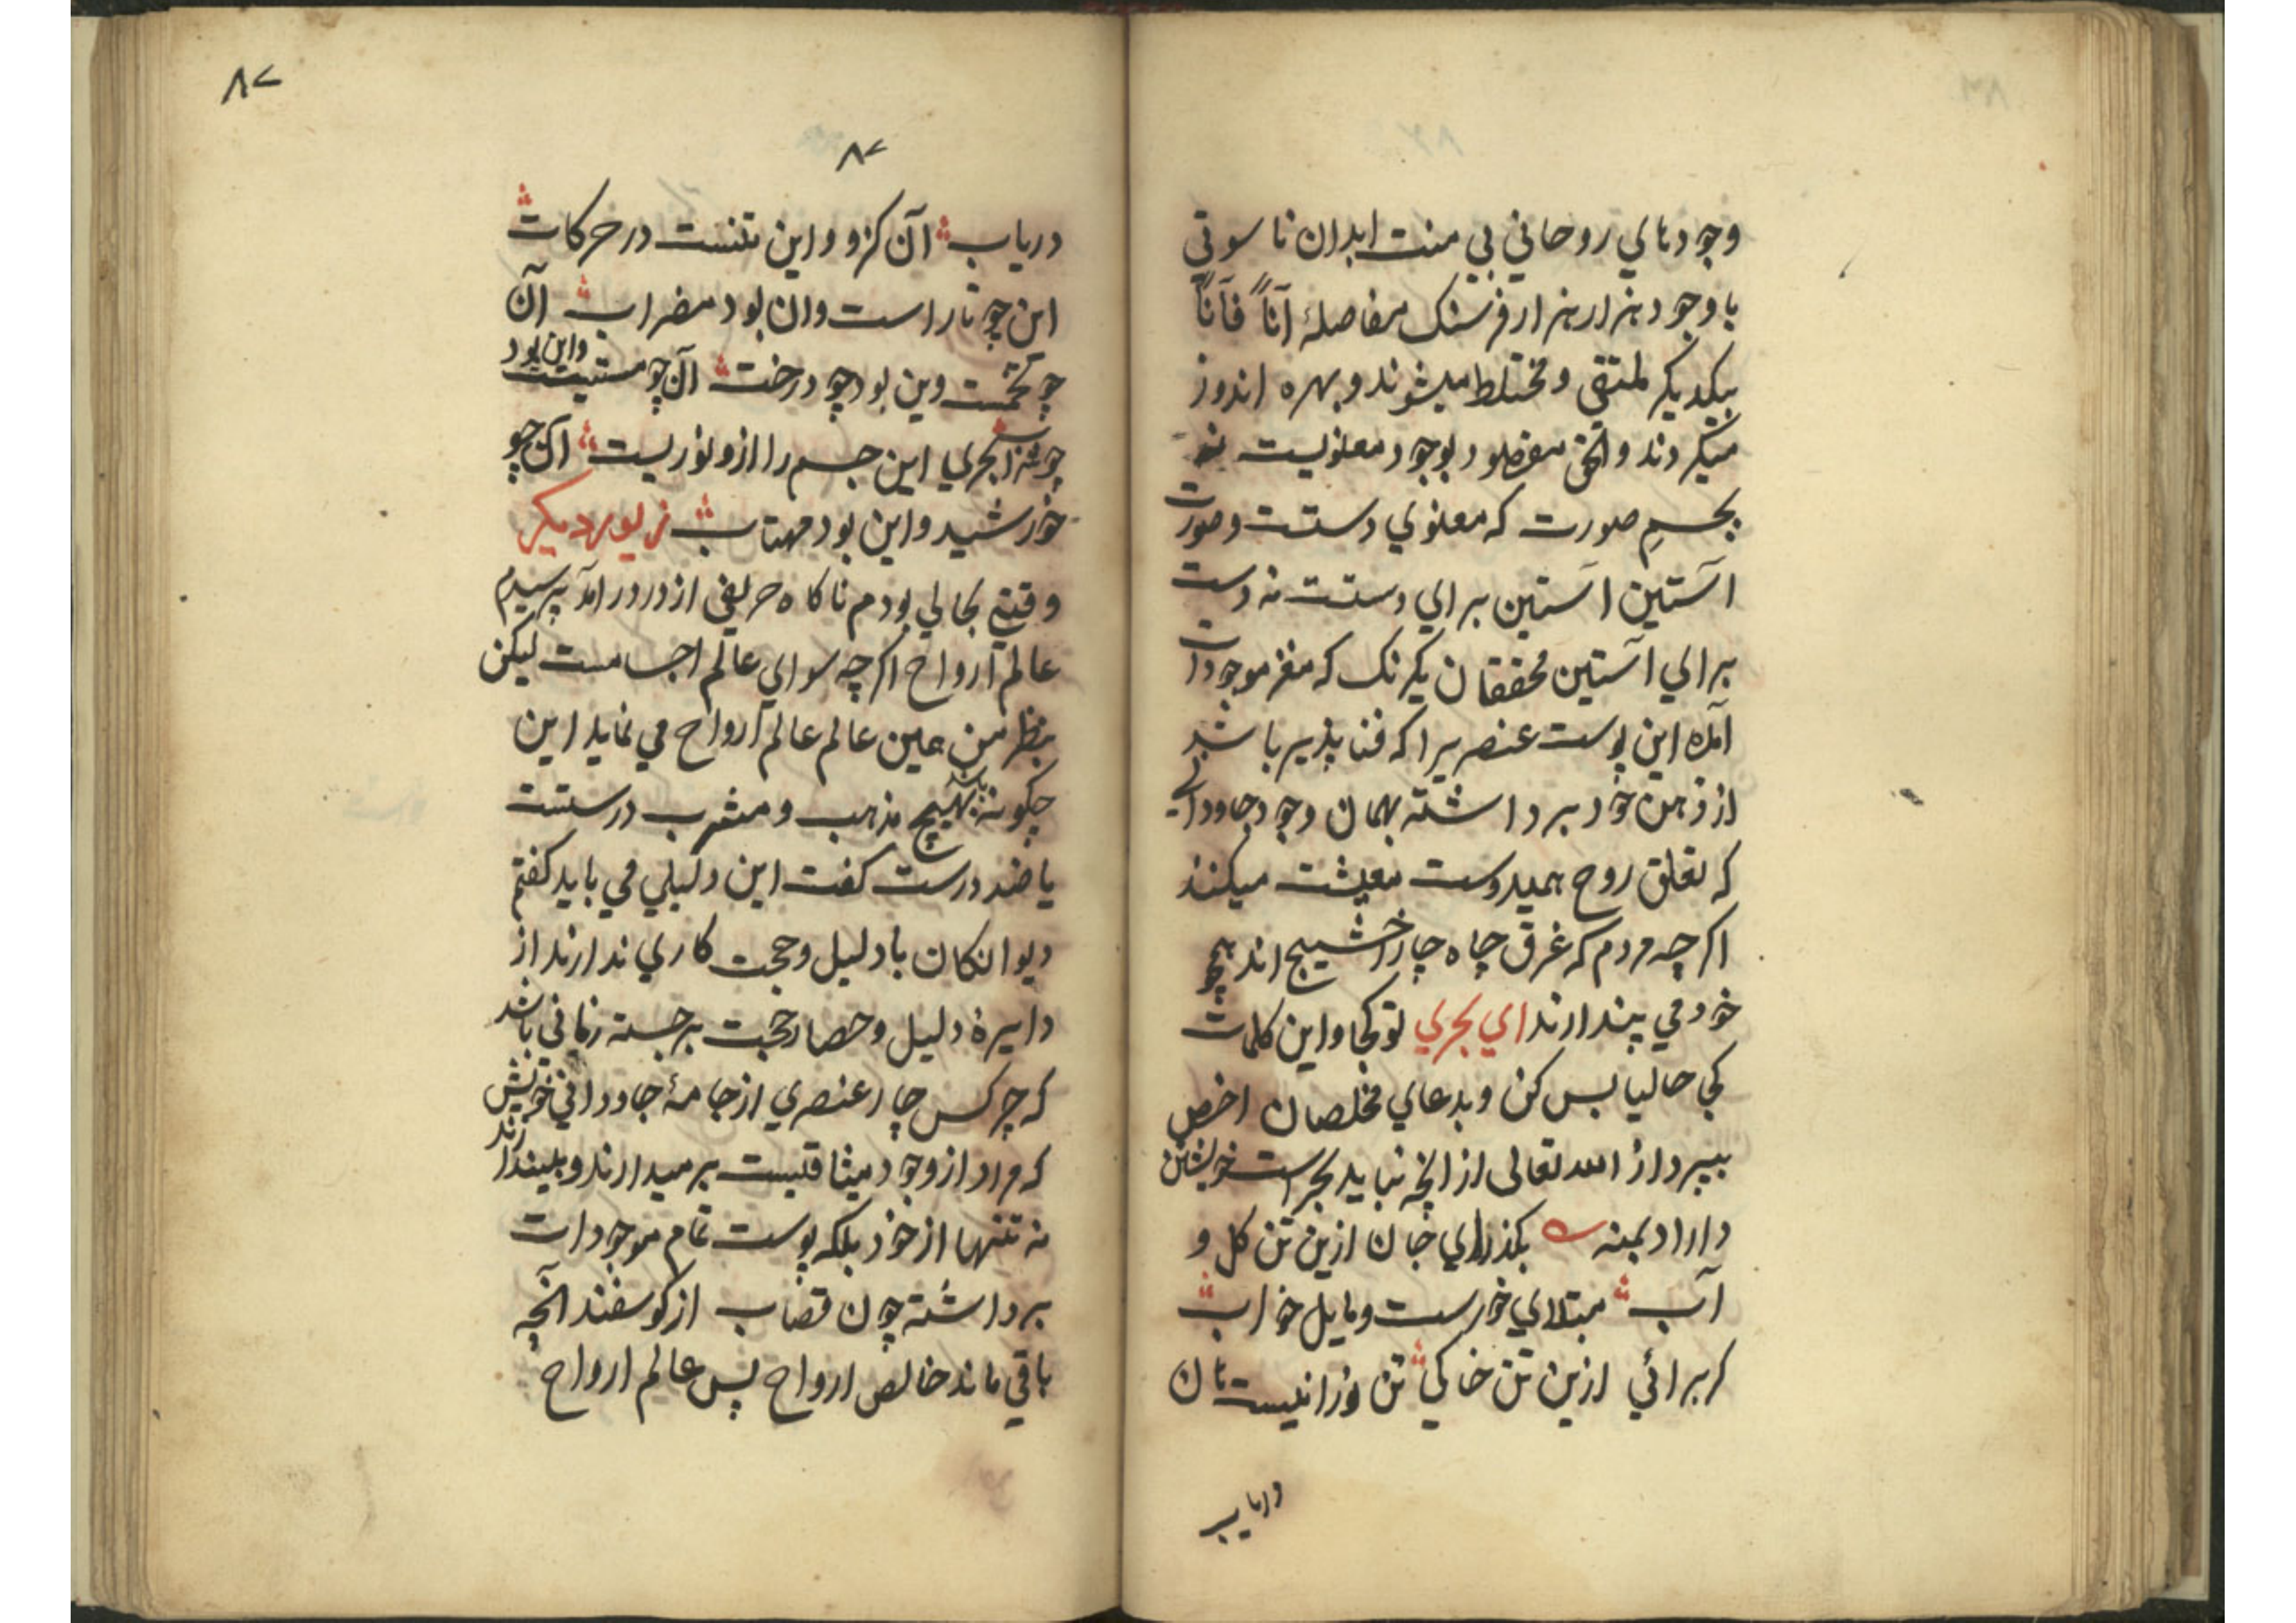 وجودهاي روحاني بي منت ابدان ناسوتي
باوجود هزار هزار فرسنک مفاصلهٔ آناً فآناً
بيکديکر ملتقي و مختلط ميشوند و بهره اندوز
ميکردند و الحق مقصود بوجود معنويست نه
بجسمِ صورت که معنوي دستست و صورت
آستين آستين براي دستست نه دست
براي آستين محققان يکرنک که مغز موجودات
آمده اين پوست عنصريرا که فنا پذير باشد
از ذهن خود برداشته بهمان وجود جاوداني
که تعلق روح بميدوست معيشت ميکنند
اکرچه مردم که غرق چاه چار اخشيج اند همچو
خود مي پندارند اي بحري تو کجا و اين کلمات
کجا حاليا بس کن و بدعاي مخلصان اخص
بپرداز الله تعالى از انچه نبايد بحراست خويشتن
داراد بمنه بکذر اي جان ازين تن کل و
آب مبتلاي خورست و مايل خواب
کر برائي ازين تن خاکي تن نورانيست هان
درياب
٨٧
٨٧
درياب آن کزو و اين تنست در حرکات
اين چو تار است وان بود مضراب آن
چو تخمست وين بود چو درخت آن چو مستيست و اين بود
چو شراب بحري اين جسم را ازو نوريست آن چو
خورشيد و اين بود مهتاب زيور ديکر
وقتي بحالي بودم ناکاه حريفي از در درآمد پرسيدم
عالم ارواح اکرچه سواي عالم اجسامست ليکن
بنظر من عين عالم عالم ارواح مي نمايد اين
چکونه باشد بهيچ مذهب و مشرب درستست
يا ضد درست کفت اين دليلي مي بايد کفتم
ديوانکان با دليل و حجت کاري ندارند از
دايرهٔ دليل و حصار حجت برجسته زماني باشد
که چرکس چار عنصري از جامهٔ جاوداني خويش
که مراد از وجود ميثاقيست برميدارند و بليندازند
نه تنها از خود بلکه پوست تمام موجودات
برداشته چون قصاب از کوسفند آنچه
باقي ماند خالص ارواح پس عالم ارواح